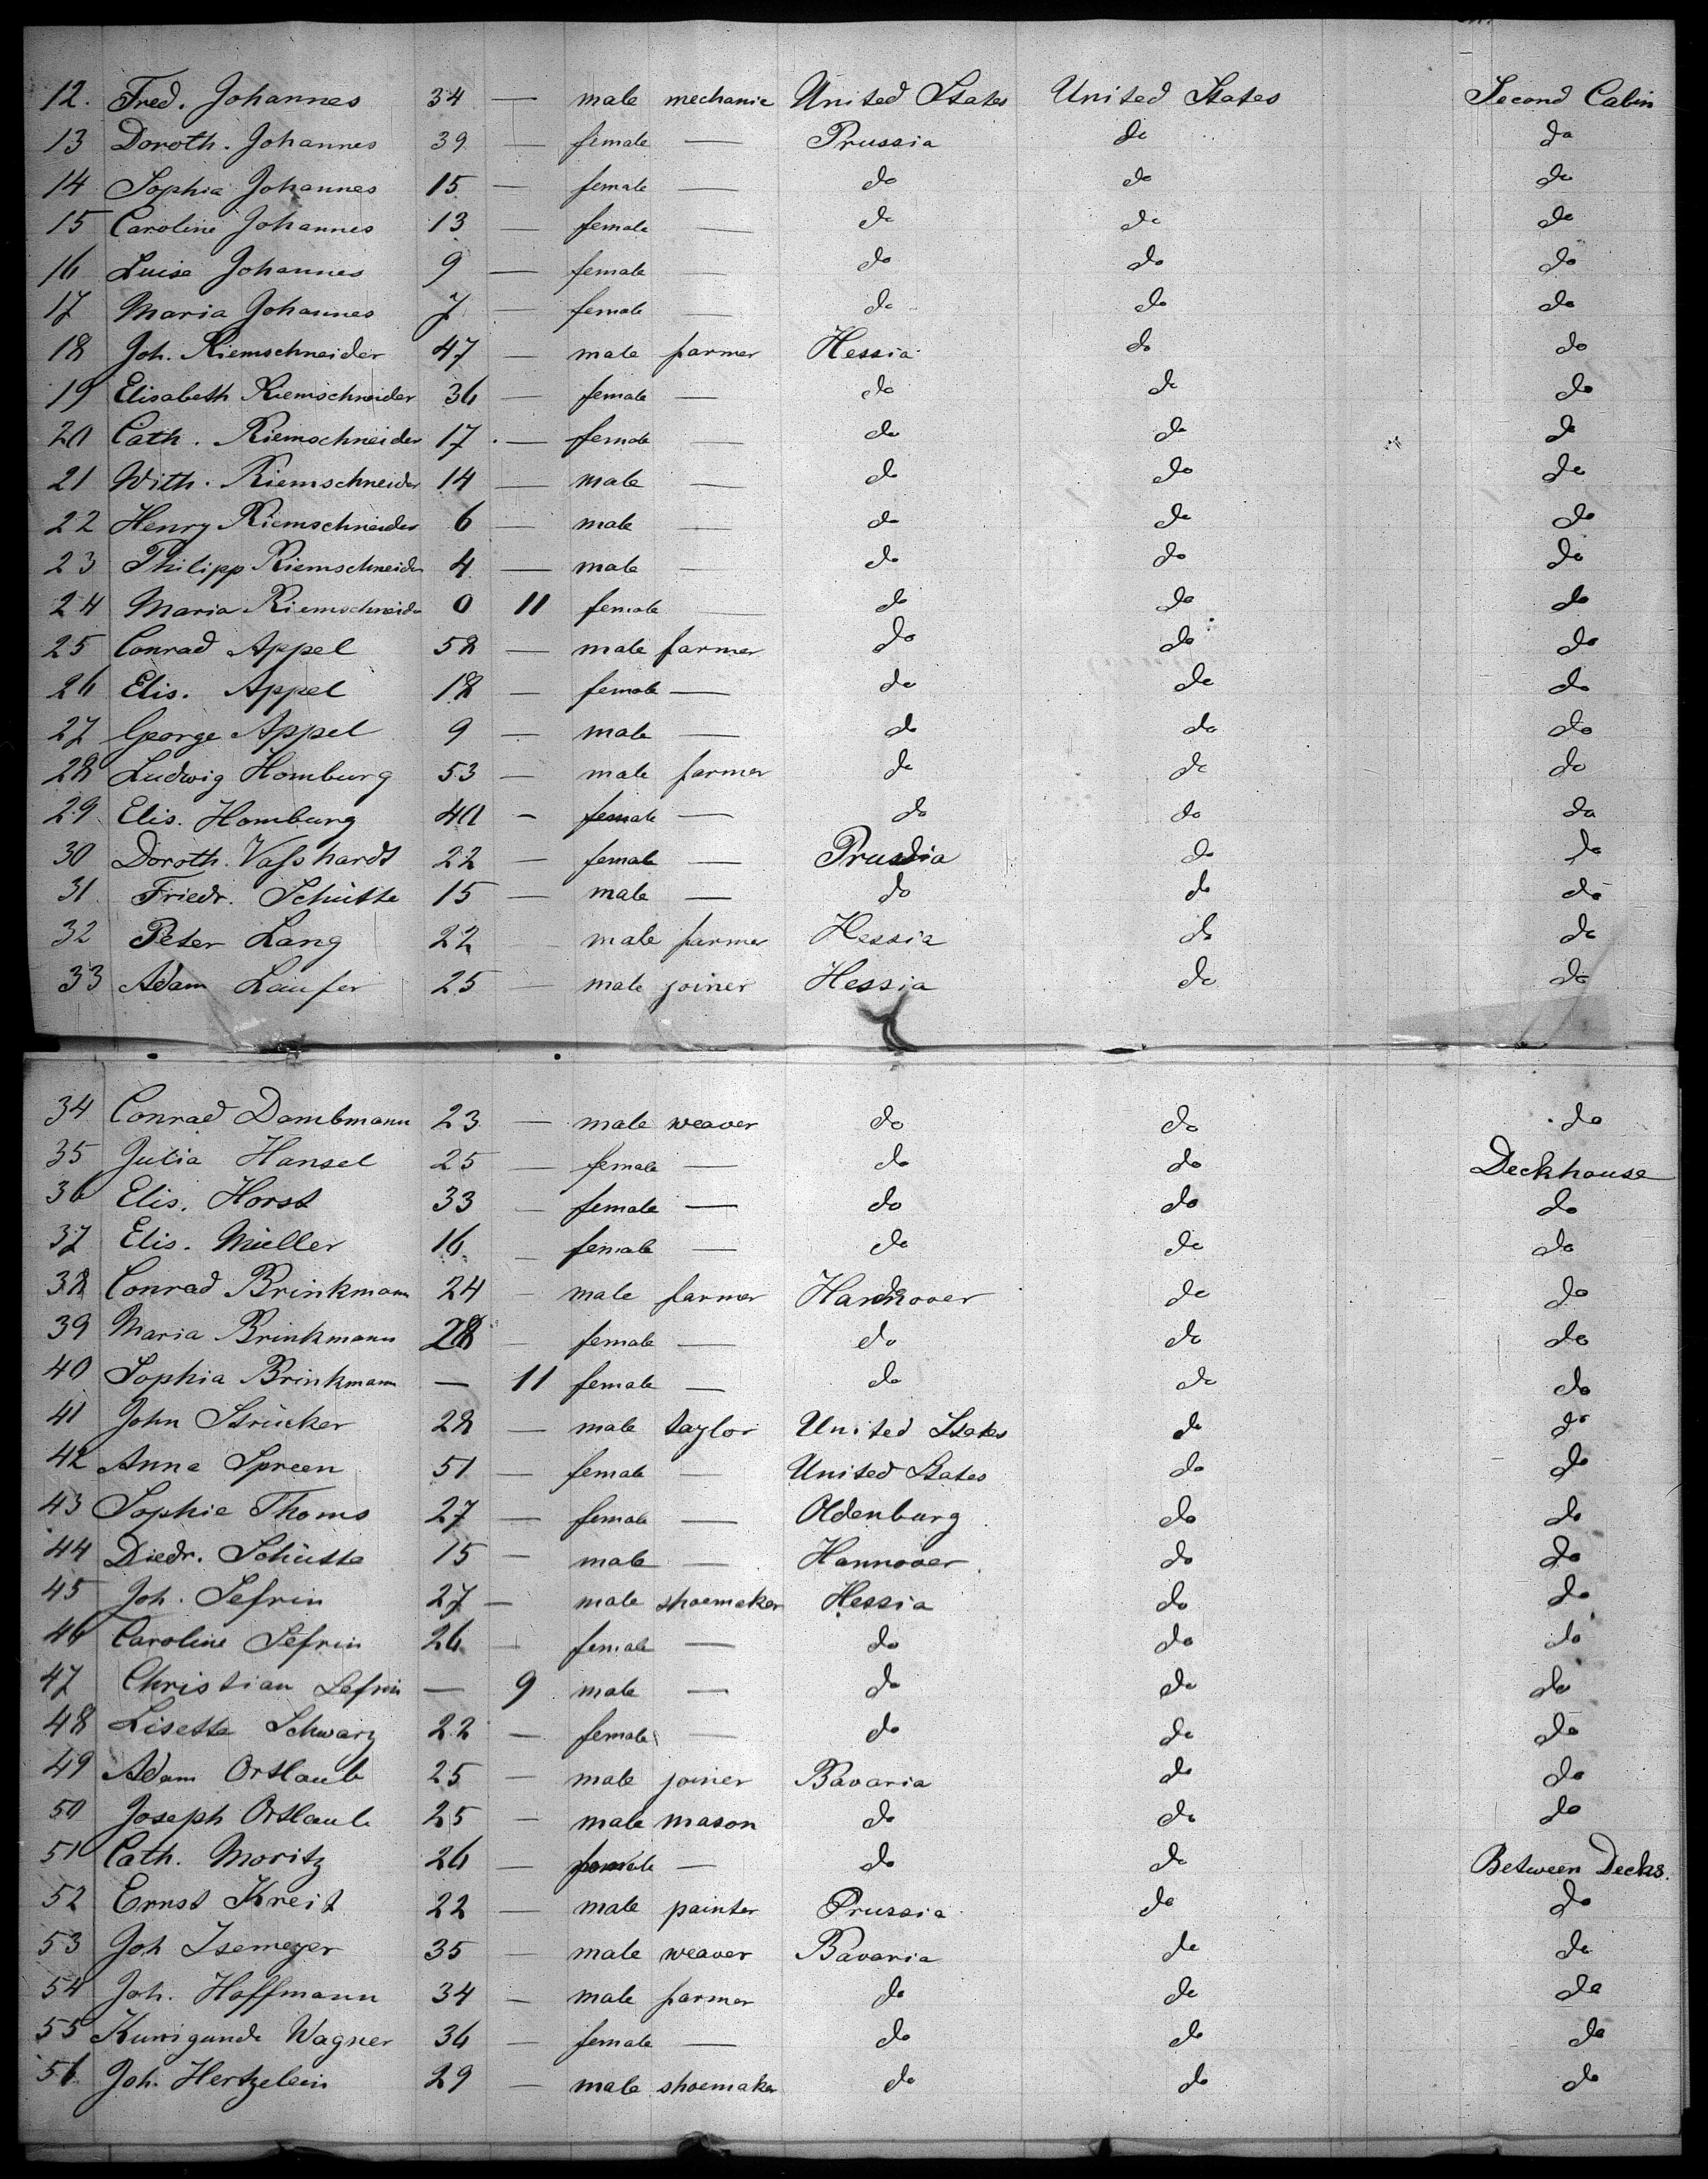 12. Fred. Johannes 34 — male mechanic United States United States Second Cabin
13 Doroth. Johannes 39 — female — Prussia do do
14 Sophia Johannes 15 — female — do do do
15 Caroline Johannes 13 — female — do do do
16 Luise Johannes 9 — female — do do do
17 Maria Johannes 7 — female — do do do
18 Joh. Riemschneider 47 — male farmer Hessia do do
19 Elisabeth Riemschneider 36 — female — do do do
20 Cath. Riemschneider 17 — female — do do do
21 With. Riemschneider 14 — male — do do do
22 Henry Riemschneider 6 — male — do do do
23 Philipp Riemschneider 4 — male — do do do
24 Maria Riemschneider 0 11 female — do do do
25 Conrad Appel 58 — male farmer do do do
26 Elis. Appel 18 — female — do do do
27 George Appel 9 — male — do do do
28 Ludwig Homburg 53 — male farmer do do do
29 Elis. Homburg 40 — female — do do do
30 Doroth. Vasshardt 22 — female — Prussia do do
31 Friedr. Schütte 15 — male — do do do
32 Peter Lang 22 — male farmer Hessia do do
33 Adam Laufer 25 — male joiner Hessia do do
34 Conrad Dambmann 23 — male weaver do do do
35 Julia Hansel 25 — female — do do Deckhouse
36 Elis. Horst 33 — female — do do do
37 Elis. Müller 16 — female — do do do
38 Conrad Brinkmann 24 — male farmer Hannover do do
39 Maria Brinkmann 28 — female — do do do
40 Sophia Brinkmann — 11 female — do do do
41 John Strücker 28 — male taylor United States do do
42 Anna Spreen 51 — female — United States do do
43 Sophie Thoms 27 — female — Oldenburg do do
44 Diedr. Schütte 15 — male — Hannover do do
45 Joh. Sefrin 27 — male shoemaker Hessia do do
46 Caroline Sefrin 26 — female — do do do
47 Christian Sefrin — 9 male — do do do
48 Lisette Schwarz 22 — female — do do do
49 Adam Ortlaub 25 — male joiner Bavaria do do
50 Joseph Ortlaub 25 — male mason do do do
51 Cath. Moritz 26 — female — do do Between Decks.
52 Ernst Kreit 22 — male painter Prussia do do
53 Joh Isemeyer 35 — male weaver Bavaria do do
54 Joh. Hoffmann 34 — male farmer do do do
55 Kunigunde Wagner 36 — female — do do do
56 Joh. Hertzelein 29 — male shoemaker do do do